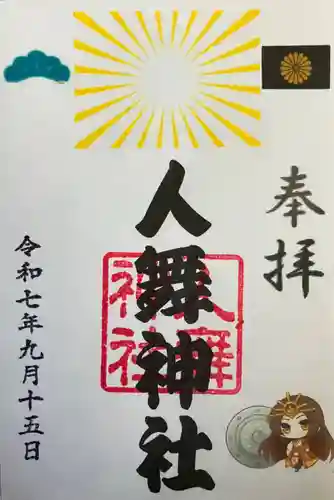 奉拝
人舞神社
人舞神社
令和七年九月十五日